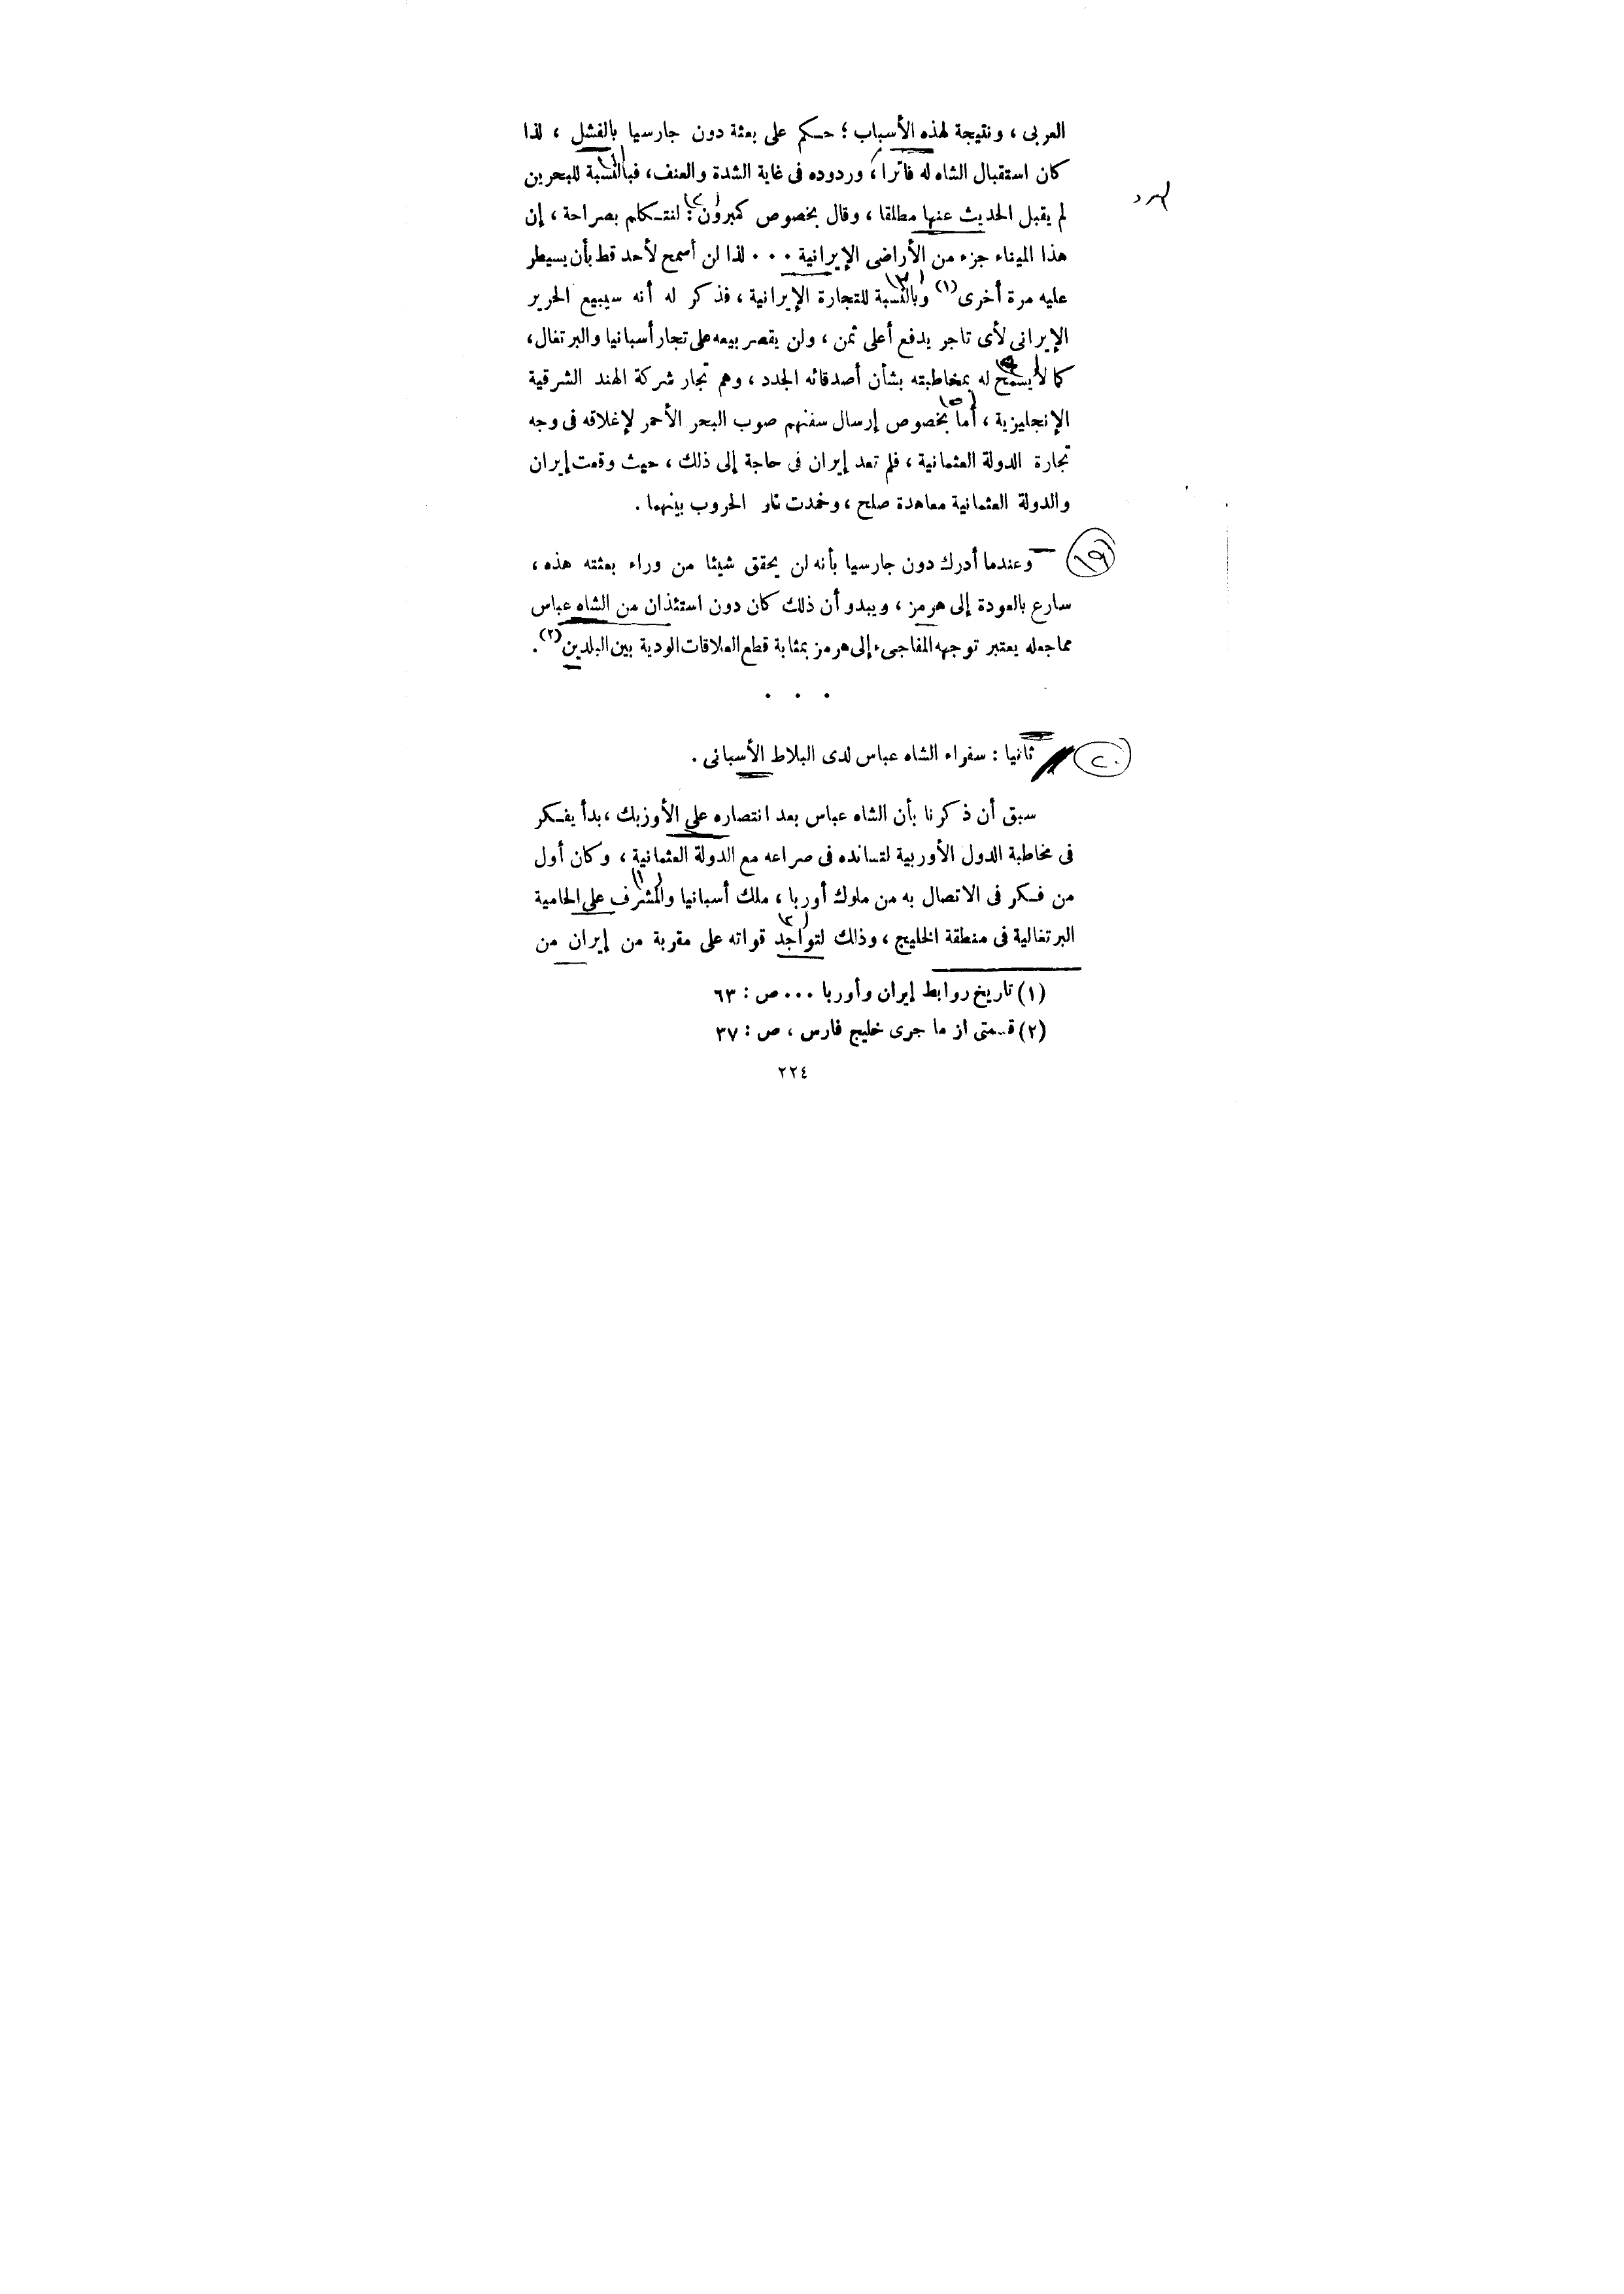 العربى ، ونتيجة لهذه الأسباب ؛ حكم على بعثة دون جارسيا بالفشل ، لذا
كان استقبال الشاه له فاترا ، وردوده فى غاية الشدة والعنف، فبالنسبة للبحرين
لم يقبل الحديث عنها مطلقا ، وقال بخصوص كمبرون : لنتكلم بصراحة ، إن
هذا الميناء جزء من الأراضى الإيرانية ٠٠٠ لذا لن أسمح لأحد قط بأن يسيطر
عليه مرة أخرى (١) وبالنسبة للتجارة الإيرانية ، فذكر له أنه سيبيع الحرير
الإيرانى لأى تاجر يدفع أعلى ثمن ، ولن يقصر بيعه على تجار أسبانيا والبرتغال،
كما لا يسمح له بمخاطبته بشأن أصدقائه الجدد ، وهم تجار شركة الهند الشرقية
الإنجليزية ، أما بخصوص إرسال سفنهم صوب البحر الأحمر لإغلاقه فى وجه
تجارة الدولة العثمانية ، فلم تعد إيران فى حاجة إلى ذلك ، حيث وقعت إيران
والدولة العثمانية معاهدة صلح ، وخمدت نار الحروب بينهما .
١٩
وعندما أدرك دون جارسيا بأنه لن يحقق شيئا من وراء بعثته هذه ،
سارع بالعودة إلى هرمز ، ويبدو أن ذلك كان دون استئذان من الشاه عباس
مما جعله يعتبر توجهه المفاجىء إلى هرمز بمثابة قطع العلاقات الودية بين البلدين (٢) .
٠ ٠ ٠
٢٠
ثانيا : سفراء الشاه عباس لدى البلاط الأسبانى .
سبق أن ذكرنا بأن الشاه عباس بعد انتصاره على الأوزبك ، بدأ يفكر
فى مخاطبة الدول الأوربية لتسانده فى صراعه مع الدولة العثمانية ، وكان أول
من فكر فى الاتصال به من ملوك أوربا ، ملك أسبانيا والمشرف على الحامية
البرتغالية فى منطقة الخليج ، وذلك لتواجد قواته على مقربة من إيران من
(١) تاريخ روابط إيران وأوربا ٠٠٠ ص : ٦٣
(٢) قسمتى از ما جرى خليج فارس ، ص : ٣٧
٢٢٤